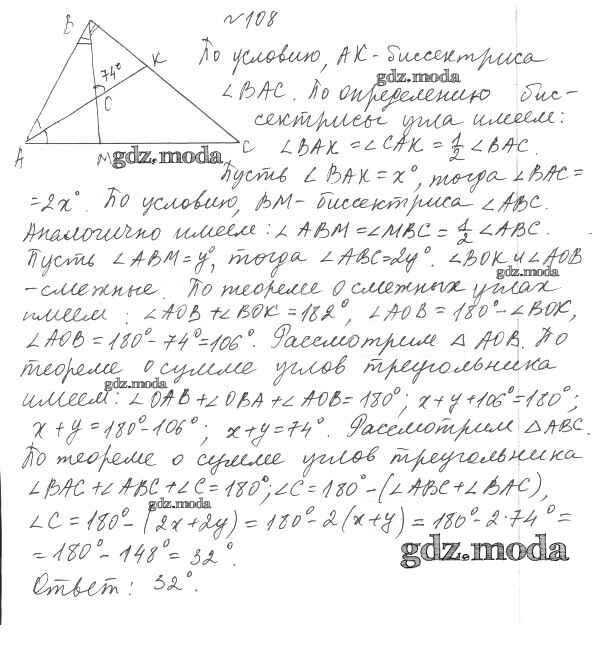 №108
B
K
74°
C
A
M
C
По условию, AK - биссектриса
gdz.moda
∠BAC. По определению бис-
сектрисы угла имеем:
∠BAK = ∠CAK = 1/2 ∠BAC.
gdz.moda
Пусть ∠BAK = x°, тогда ∠BAC =
= 2x°. По условию, BM - биссектриса ∠ABC.
Аналогично имеем: ∠ABM = ∠MBC = 1/2 ∠ABC.
Пусть ∠ABM = y°, тогда ∠ABC = 2y°. ∠BOK и ∠AOB
gdz.moda
- смежные. По теореме о смежных углах
имеем: ∠AOB + ∠BOK = 182°, ∠AOB = 180° - ∠BOK,
∠AOB = 180° - 74° = 106°. Рассмотрим △AOB. По
теореме о сумме углов треугольника
gdz.moda
имеем: ∠OAB + ∠OBA + ∠AOB = 180°; x + y + 106° = 180°;
x + y = 180° - 106°; x + y = 74°. Рассмотрим △ABC.
По теореме о сумме углов треугольника
∠BAC + ∠ABC + ∠C = 180°; ∠C = 180° - (∠ABC + ∠BAC),
gdz.moda
∠C = 180° - (2x + 2y) = 180° - 2(x + y) = 180° - 2·74° =
= 180° - 148° = 32°.
gdz.moda
Ответ: 32°.